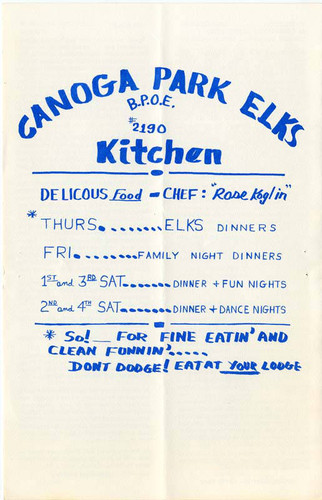 CANOGA PARK ELKS
B.P.O.E.
#2190
Kitchen
DELICOUS Food - CHEF: "Rose Koglin"
* THURS........ELKS DINNERS
FRI.........FAMILY NIGHT DINNERS
1ST and 3RD SAT.......DINNER + FUN NIGHTS
2ND and 4TH SAT.......DINNER + DANCE NIGHTS
* So!_ FOR FINE EATIN' AND
CLEAN FUNNIN'.....
DONT DODGE! EAT AT YOUR LODGE